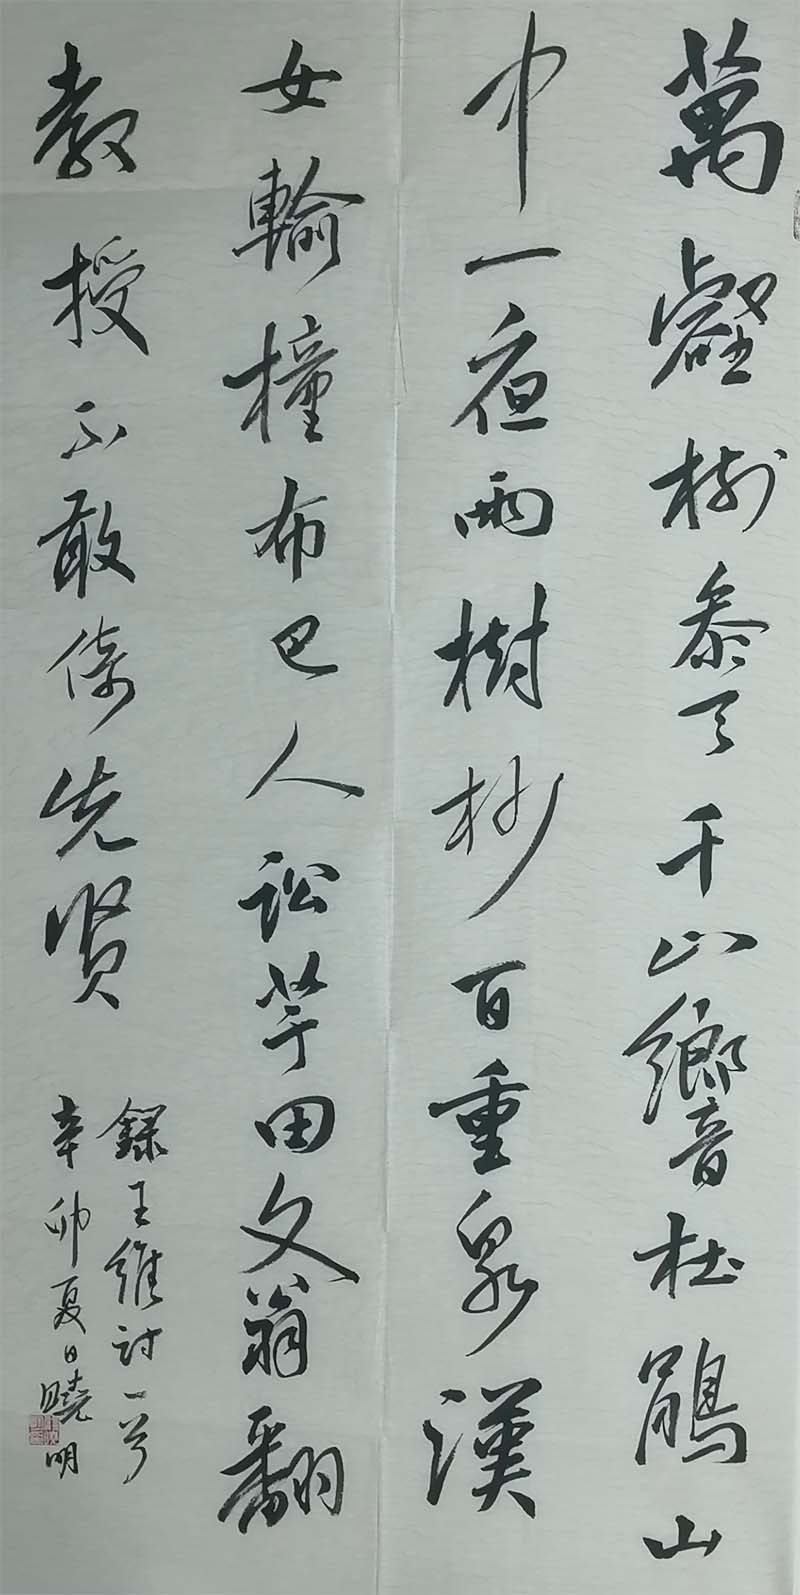 萬壑樹参天千山響杜鵑山
中一夜雨樹杪百重泉漢
女輸橦布巴人訟芋田文翁翻
教授不敢倚先贤
錄王維詩一首
辛卯夏日曉明